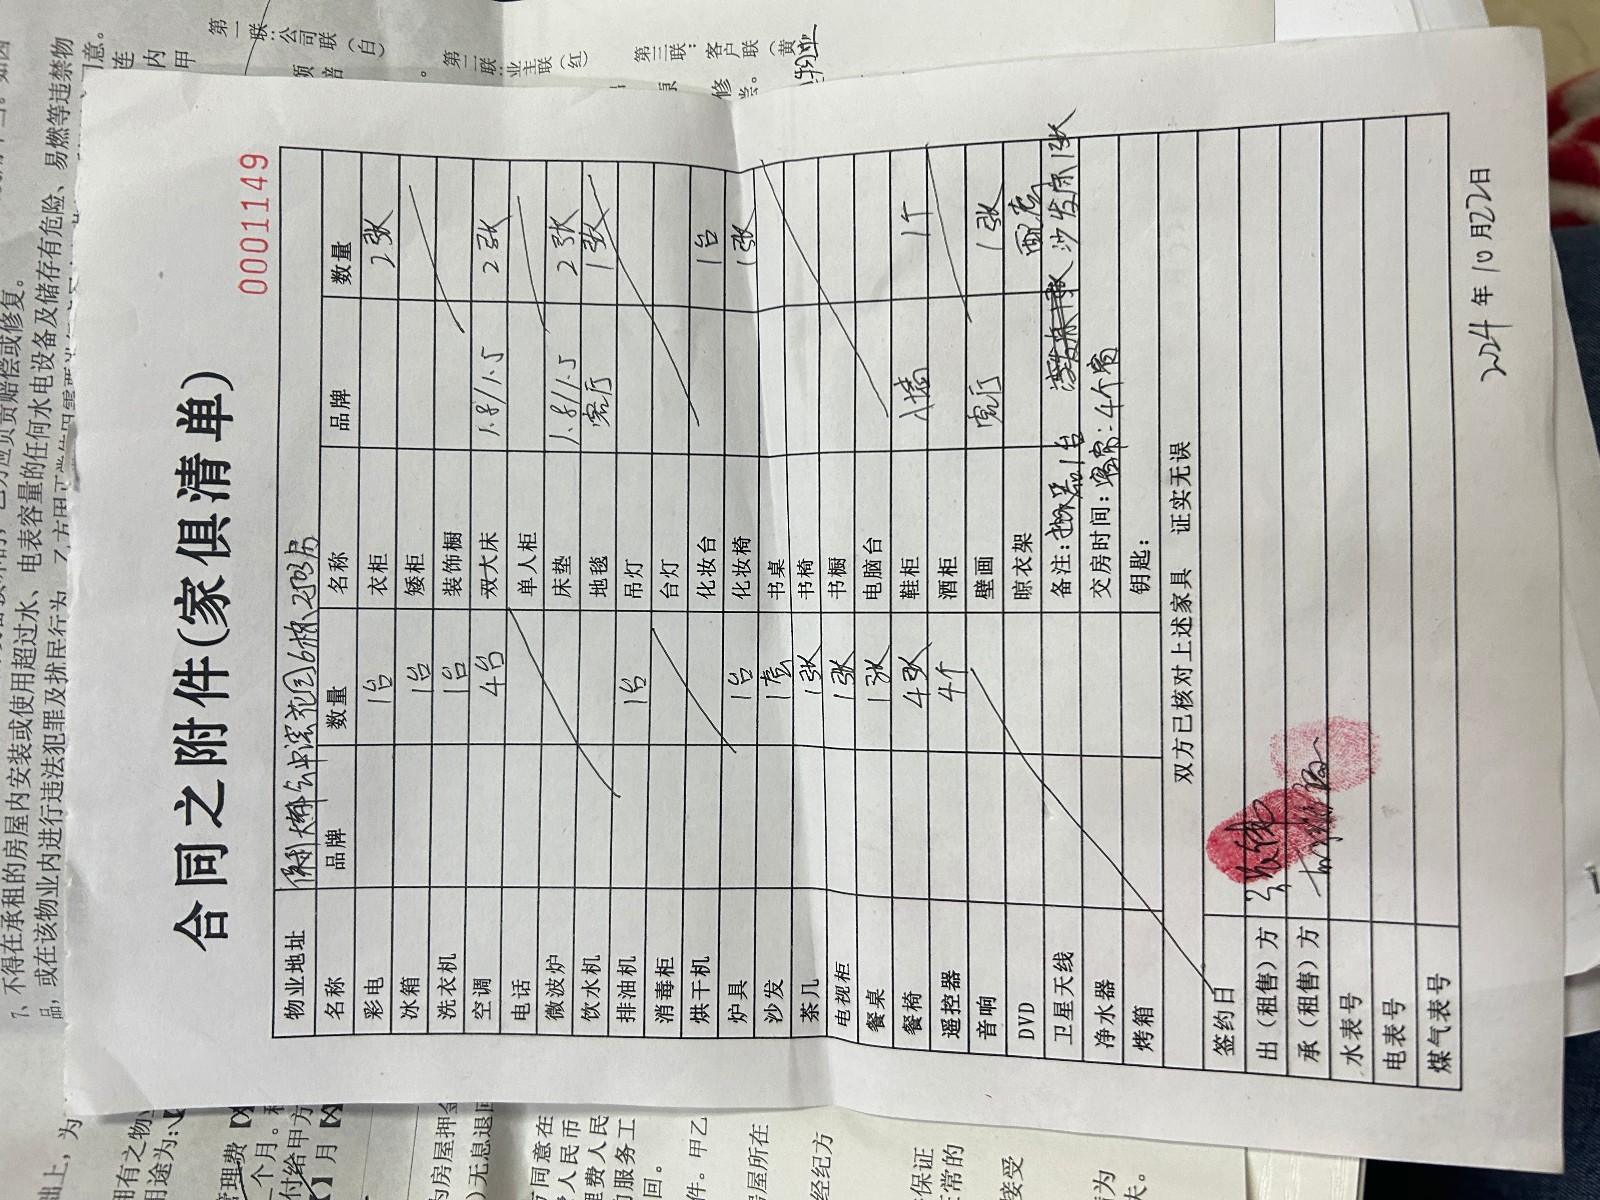 第一联:公司联(白)
第二联:业主联(红)
第三联:客户联(黄
7、不得在承租的房屋内安装或使用超过水、电表容量的任何水电设备及储存有危险、易燃等违禁物
品,或在该物业内进行违法犯罪及扰民行为
合同之附件(家俱清单)
0001149
物业地址
名称 品牌 数量 名称 品牌 数量
彩电 1台 衣柜 2张
冰箱 1台 矮柜
洗衣机 1台 装饰橱
空调 4台 双大床 1.8/1.5 2张
电话 单人柜
微波炉 床垫 1.8/1.5 2张
饮水机 地毯 客厅 1张
排油机 1台 吊灯
消毒柜 台灯
烘干机 化妆台 1台
炉具 1台 化妆椅 1张
沙发 1套 书桌
茶几 1张 书椅
电视柜 1张 书橱
餐桌 1张 电脑台
餐椅 4张 鞋柜 入墙 1个
遥控器 4个 酒柜
音响 壁画 客厅 1张
DVD 晾衣架 配套
卫星天线 备注: 1台 沙发床1张
净水器 交房时间: 4个
烤箱 钥匙:
双方已核对上述家具 证实无误
签约日
出(租售)方
承(租售)方
水表号
电表号
煤气表号
2024 年 10 月 22 日